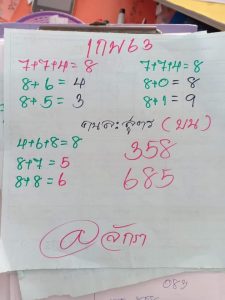 เทพ63
7+7+4=8 7+7+4=8
8+6=4 8+0=8
8+5=3 8+1=9
คนละสูตร (บน)
4+6+8=8 358
8+7=5 685
8+8=6
@จักรา
089